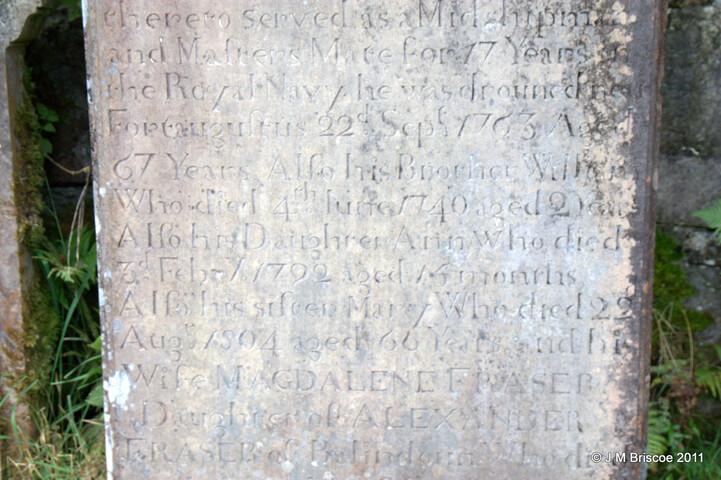 thereto served as a Midshipman
and Masters Mate for 17 Years in
the Royal Navy he was drouned near
Fortaugustus 22d Sept 1763 Aged
67 Years Also his Brother William
Who died 4th June 1740 aged 2 Years
Also his Daughter Ann Who died
3d Febry 1792 aged 15 months
Also his sister Mary Who died 22
Augt 1804 aged 66 Years and his
Wife MAGDALENE FRASER
Daughter of ALEXANDER
FRASER of Who died
© J M Briscoe 2011